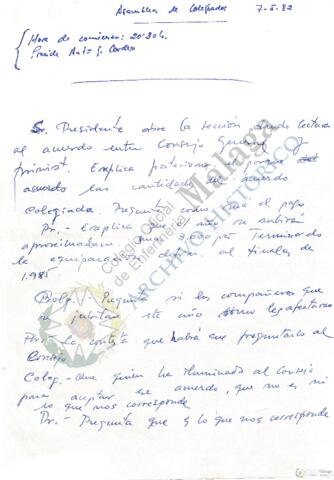 Asamblea de Colegiados 7-5-82
Hora de comienzo: 20'30h.
Preside Antº J. Cordero
Sr. Presidente abre la sección dando lectura
al acuerdo entre Consejo General y
Explica posteriormente el porque
acuerdo las cantidades acuerdo
Colegiada. Pregunta como será el pago
Pr.- Explica que este año se subirán
aproximadam.
la equiparación a finales de
1.985.
Coleg.- Pregunta si los compañeros que
se jubilan este año como les afectaría
Pr.- Le contesta que habrá que preguntarlo al
Consejo
Coleg.- Que quien ha iluminado al Consejo
para aceptar ese acuerdo, que no es ni
lo que nos corresponde
Pr.- Pregunta que es lo que nos corresponde
Colegio Oficial de Enfermería Málaga
ARCHIVO HISTÓRICO